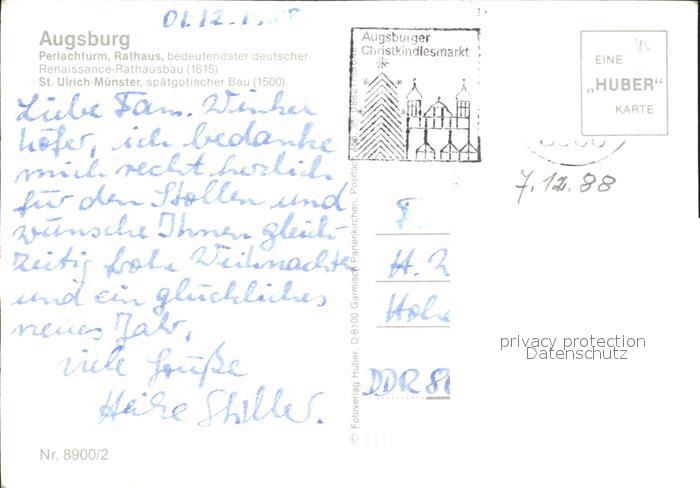 01.12.1988
Augsburg
Perlachturm, Rathaus, bedeutendster deutscher
Renaissance-Rathausbau (1615)
St. Ulrich-Münster, spätgotischer Bau (1500)
Liebe Fam. Winker
höfer, ich bedanke
mich recht herzlich
für den Stollen und
wünsche Ihnen gleich-
zeitig frohe Weihnachten
und ein glückliches
neues Jahr,
viele Grüße
Heike Stiller.
Nr. 8900/2
© Fotoverlag Huber, D-8100 Garmisch-Partenkirchen, Postfach
Augsburger
Christkindlesmarkt
EINE
„HUBER"
KARTE
7.12.88
H.
Hohe
DDR 8
privacy protection
Datenschutz